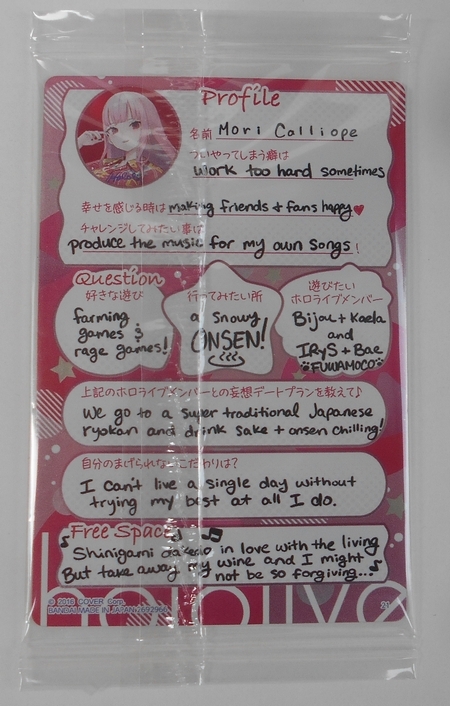 Profile
名前 Mori Calliope
ついやってしまう癖は
work too hard sometimes
幸せを感じる時は making friends & fans happy♥
チャレンジしてみたい事は
produce the music for my own songs!
Question
好きな遊び
farming
games &
rage games!
行ってみたい所
a snowy
ONSEN!
遊びたい
ホロライブメンバー
Bijou + Kaela
and
IRyS + Bae
FUWAMOCO
上記のホロライブメンバーとの妄想デートプランを教えて♪
We go to a super traditional Japanese
ryokan and drink sake + onsen chilling!
自分のまげられないこだわりは?
I can't live a single day without
trying my best at all I do.
Free Space
Shinigami in love with the living
But take away my wine and I might
not be so forgiving...
hololive
© 2016 COVER Corp.
BANDAI MADE IN JAPAN 2692966